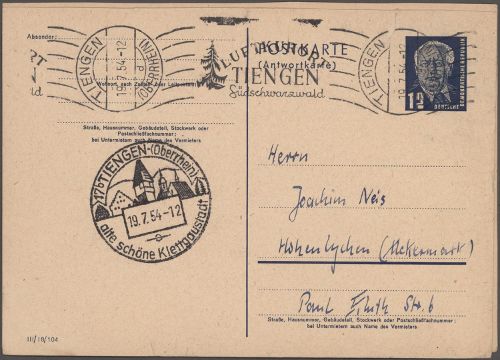 Absender:
TIENGEN
19.7.54-12
(OBERRHEIN)
LUFTKURORT
TIENGEN
Südschwarzwald
POSTKARTE
(Antwortkarte)
TIENGEN
19.7.54-12
12
DEUTSCHE
DEMOKRATISCHE REPUBLIK
Wohnort, auch Zustell- oder Leitpostamt
Straße, Hausnummer, Gebäudeteil, Stockwerk oder
Postschließfachnummer;
bei Untermietern auch Name des Vermieters
17b TIENGEN-(Oberrhein)
19.7.54-12
alte schöne Klettgaustadt
Herrn
Joachim Neis
Hohenlychen (Uckermark)
Paul Str. 6
Straße, Hausnummer, Gebäudeteil, Stockwerk oder Postschließfachnummer;
bei Untermietern auch Name des Vermieters
III/18/104